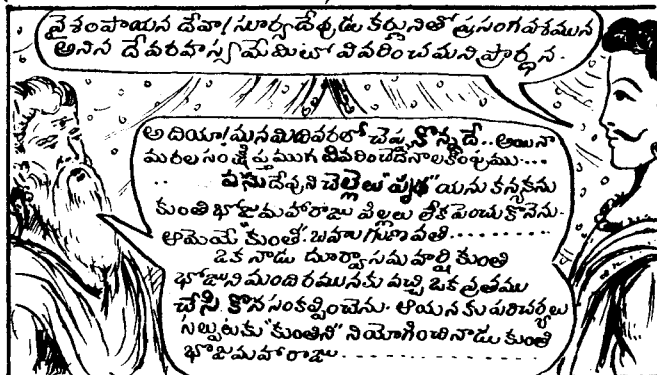 వైశంపాయన దేవా! సూర్యదేవుడు కర్ణునితో ప్రసంగవశమున
అనిన దేవరహస్యమేమిటో వివరించమని ప్రార్థన.
అదియా! మనమిదివరలో చెప్పుకొన్నదే.. అయినా
మరల సంక్షిప్తముగ వివరించెదనాలకింపుము...
.. వసుదేవుని చెల్లెలు "పృథ" యను కన్యకను
కుంతి భోజమహారాజు పిల్లలు లేక పెంచుకొనెను.
ఆమెయే "కుంతి". బహుగుణవతి.........
ఒక నాడు దూర్వాసమహర్షి కుంతి
భోజుని మందిరమునకు వచ్చి ఒక వ్రతము
చేసి కొన సంకల్పించెను. ఆయనకు పరిచర్యలు
సల్పుటకు "కుంతిని" నియోగించినాడు కుంతి
భోజమహారాజు..............